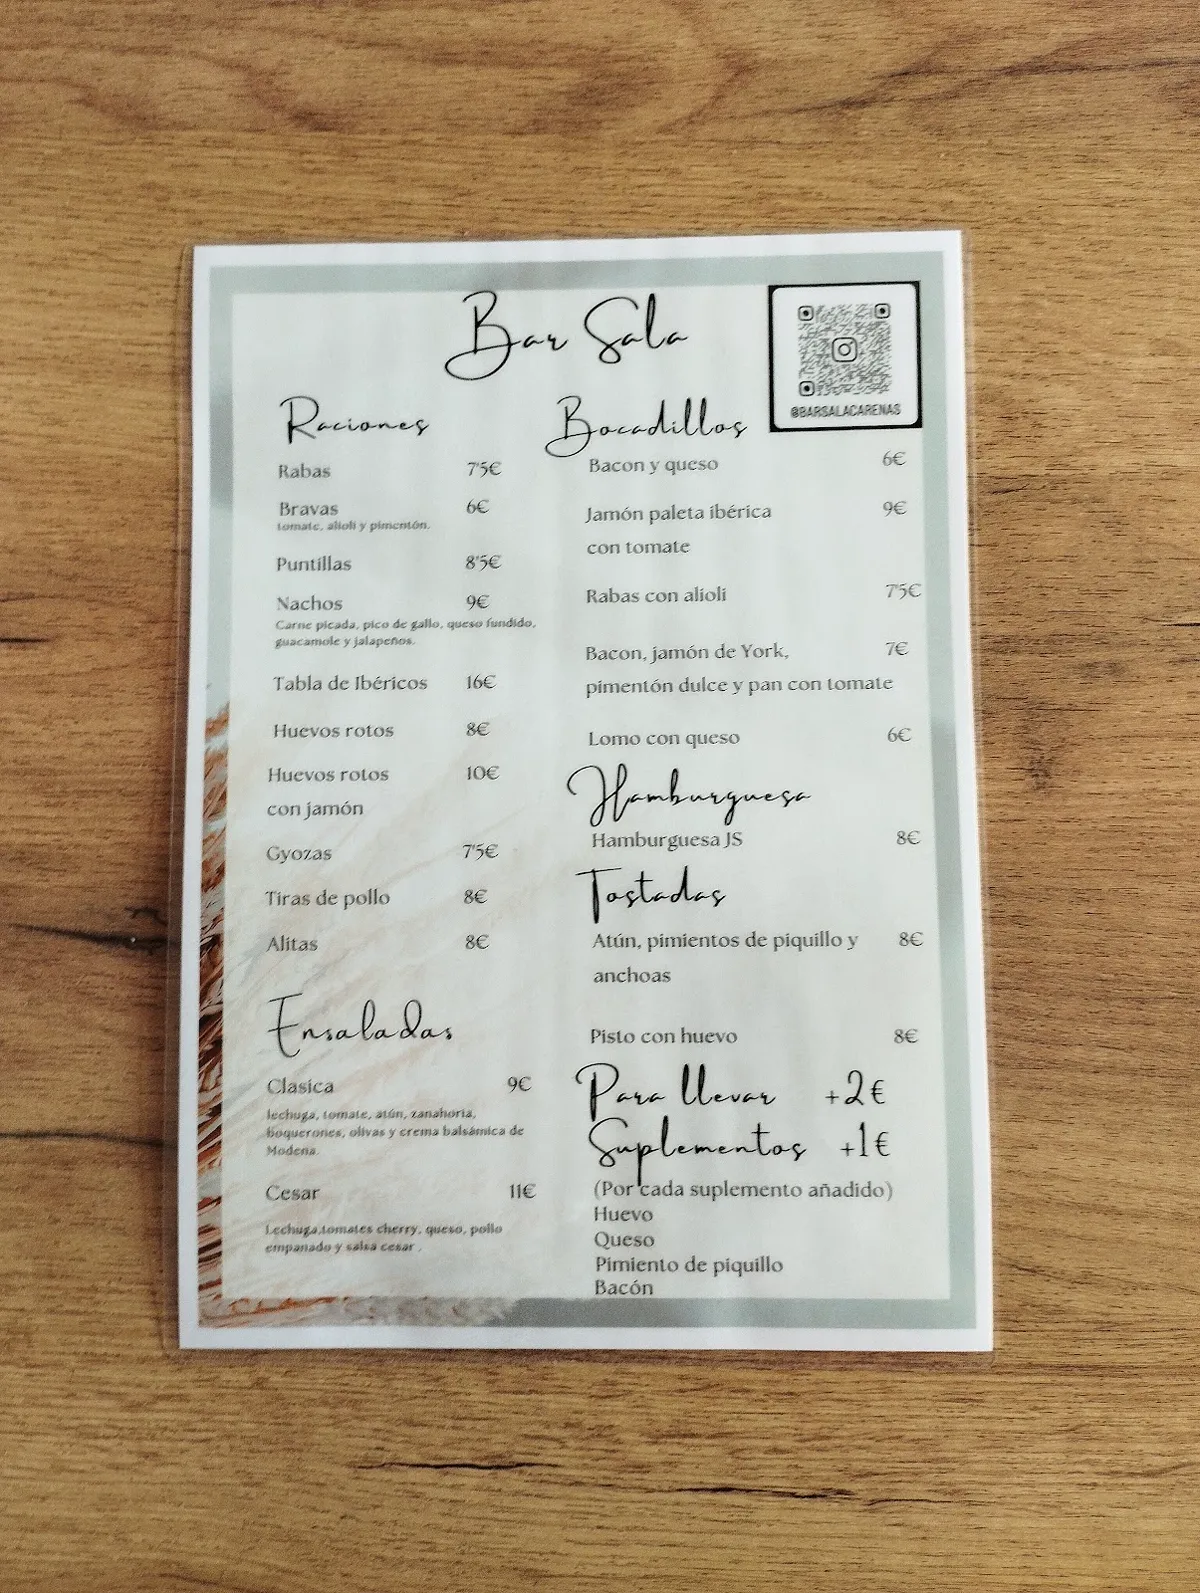 Bar Sala
@BARSALACARENAS
Raciones
Rabas 7'5€
Bravas 6€
tomate, alioli y pimentón.
Puntillas 8'5€
Nachos 9€
Carne picada, pico de gallo, queso fundido,
guacamole y jalapeños.
Tabla de Ibéricos 16€
Huevos rotos 8€
Huevos rotos 10€
con jamón
Gyozas 7'5€
Tiras de pollo 8€
Alitas 8€
Ensaladas
Clasica 9€
lechuga, tomate, atún, zanahoria,
boquerones, olivas y crema balsámica de
Modena.
Cesar 11€
Lechuga,tomates cherry, queso, pollo
empanado y salsa cesar .
Bocadillos
Bacon y queso 6€
Jamón paleta ibérica 9€
con tomate
Rabas con alioli 7'5€
Bacon, jamón de York, 7€
pimentón dulce y pan con tomate
Lomo con queso 6€
Hamburguesa
Hamburguesa JS 8€
Tostadas
Atún, pimientos de piquillo y 8€
anchoas
Pisto con huevo 8€
Para llevar +2€
Suplementos +1€
(Por cada suplemento añadido)
Huevo
Queso
Pimiento de piquillo
Bacón